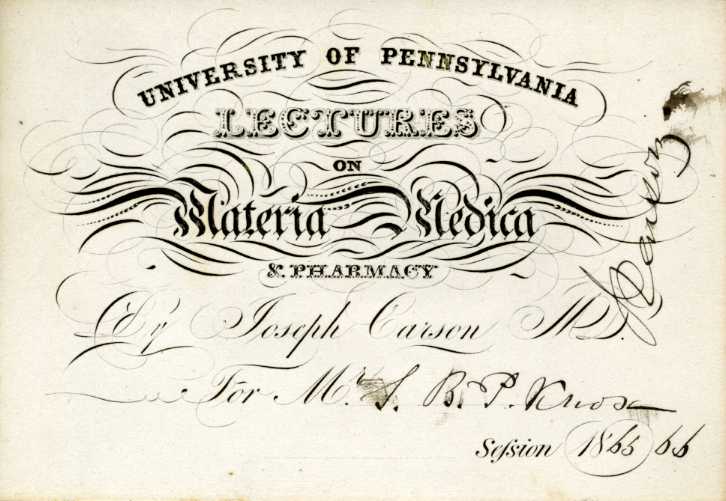 UNIVERSITY OF PENNSYLVANIA
LECTURES
ON
Materia Medica
& PHARMACY
By Joseph Carson M.D.
For Mr. S. B. P. Knox
Seſsion 1865 66